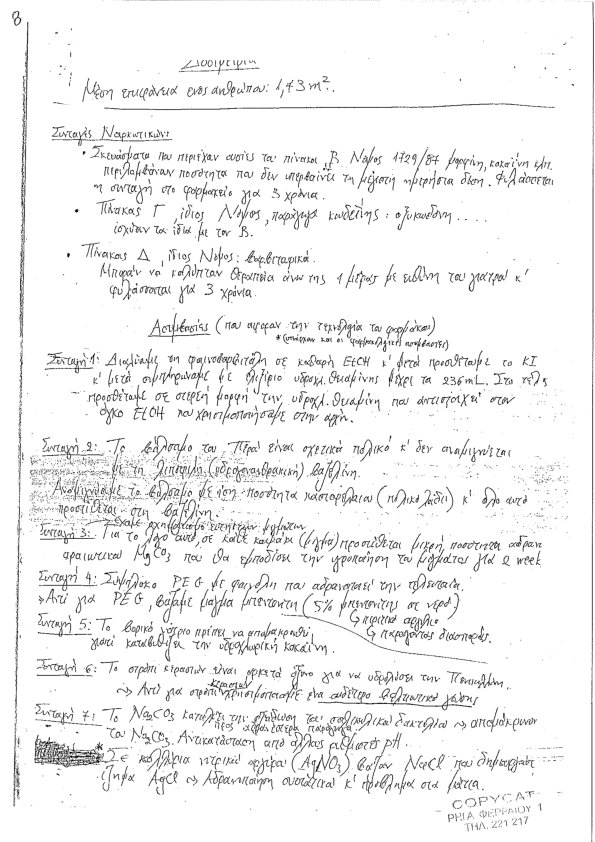 8
Δοσιμετρία
Μέση επιφάνεια ενός ανθρώπου: 1,73 m².
Συνταγές Ναρκωτικών:
• Σκευάσματα που περιέχουν ουσίες του πίνακα B Νόμος 1729/87 μορφίνη, κοκαΐνη κλπ.
περιλαμβάνουν ποσότητα που δεν υπερβαίνει τη μέγιστη ημερήσια δόση. Φυλάσσεται
η συνταγή στο φαρμακείο για 3 χρόνια.
• Πίνακας Γ, ίδιος Νόμος, παράγωγα κωδεΐνης: οξυκωδόνη ....
ισχύουν τα ίδια με τον B.
• Πίνακας Δ, ίδιος Νόμος: βαρβιταρικά.
Μπορούν να καλύπτουν θεραπεία άνω της 1 μέρας με ευθύνη του γιατρού κ'
φυλάσσονται για 3 χρόνια.
Ασυμβασίες (που αφορούν την τεχνολογία του φαρμάκου)
* (υπάρχουν και οι φαρμακολογικές ασυμβασίες)
Συνταγή 1: Διαλύουμε τη φαινοβαρβιτάλη σε καθαρή EtOH κ' μετά προσθέτουμε το KI
κ' μετά συμπληρώνουμε με ελιξίριο υδροχλ. θειαμίνης μέχρι τα 236 mL. Στο τέλος
προσθέτουμε σε στερεή μορφή την υδροχλ. θειαμίνη που αντιστοιχεί στον
όγκο EtOH που χρησιμοποιήσαμε στην αρχή.
Συνταγή 2: Το βάλσαμο του Περού είναι σχετικά πολικό κ' δεν αναμιγνύεται
με τη λιπόφιλη (υδρογονανθρακική) βαζελίνη.
Αναμιγνύουμε το βάλσαμο με ίση ποσότητα καστορελαίου (πολικό λάδι) κ' όλο αυτό
προστίθεται στη βαζελίνη.
Έχουμε σχηματισμό ευτηκτικών μιγμάτων
Συνταγή 3: Για το λόγο αυτό, σε κάθε καψάκι (μίγμα) προστίθεται μικρή ποσότητα αδραν.
αραιωτικού MgCO3 που θα εμποδίσει την υγροποίηση του μίγματος για 2 week
Συνταγή 4: Σύμπλοκο PEG με φαινόλη που αδρανοποιεί την τελευταία.
→ Αντί για PEG, βάζουμε μάγμα μπεντονίτη (5% μπεντονίτης σε νερό)
↳ πυριτικό αργίλιο
↳ παράγοντας διασποράς.
Συνταγή 5: Το βορικό νάτριο πρέπει να απομακρυνθεί
γιατί καταβυθίζει την υδροχλωρική κοκαΐνη.
Συνταγή 6: Το σιρόπι κερασιών είναι αρκετά όξινο για να υδρολύσει την Πενικιλλίνη.
→ Αντί για σιρόπι κερασιών χρησιμοποιούμε ένα ουδέτερο βελτιωτικό γεύσης
Συνταγή 7: Το Na2CO3 καταλύει την οξείδωση του σαλικυλικού δακτυλίου → απομάκρυνση
προς αδρανέστερα παράγωγα
του Na2CO3. Αντικατάσταση από άλλους ρυθμιστές pH.
* Σε κολλύρια νιτρικού αργύρου (AgNO3) βάζουν NaCl που δημιουργεί
ίζημα AgCl → Αδρανοποίηση συστατικού κ' πρόβλημα στα μάτια.
COPYCAT
ΡΗΓΑ ΦΕΡΡΑΙΟΥ 1
ΤΗΛ. 221 217